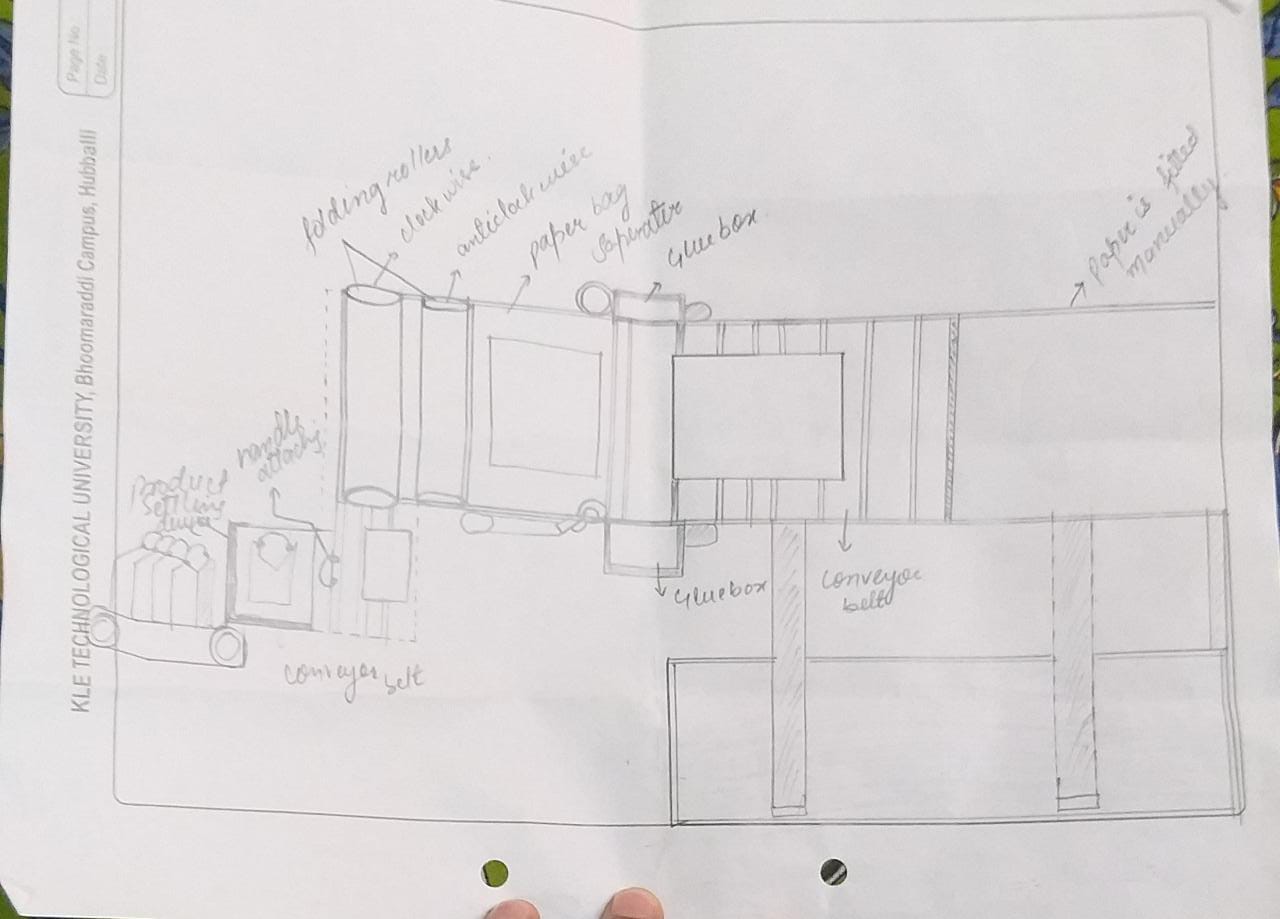 Page No
Date
KLE TECHNOLOGICAL UNIVERSITY, Bhoomaraddi Campus, Hubballi
folding rollers
clockwise.
anticlockwise
paper bag
seperator
Gluebox
paper is fitted
manually.
handle
attaching
product
settling
Gluebox
conveyor
belt
conveyor belt